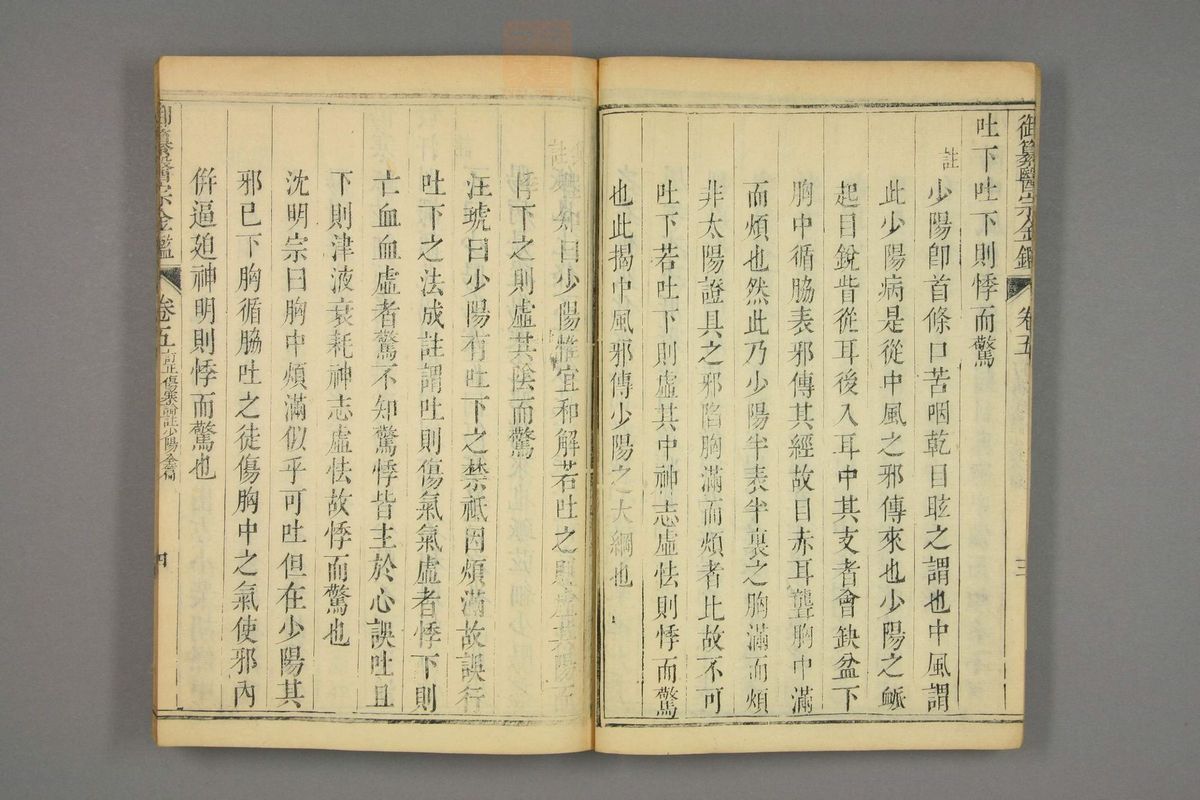 御纂醫宗金鑑 卷五 三
吐下吐下則悸而驚
註
少陽即首條口苦咽乾目眩之謂也中風謂
此少陽病是從中風之邪傳來也少陽之䘑
起目銳眥從耳後入耳中其支者會缺盆下
胸中循脇表邪傳其經故目赤耳聾胸中滿
而煩也然此乃少陽半表半裏之胸滿而煩
非太陽證具之邪陷胸滿而煩者比故不可
吐下若吐下則虛其中神志虛怯則悸而驚
也此揭中風邪傳少陽之大綱也
註
知曰少陽惟宜和解若吐之則虛其陽而
悸下之則虛其陰而驚
汪琥曰少陽有吐下之禁祗因煩滿故誤行
吐下之法成註謂吐則傷氣氣虛者悸下則
亡血血虛者驚不知驚悸皆主於心誤吐且
下則津液衰耗神志虛怯故悸而驚也
沈明宗曰胸中煩滿似乎可吐但在少陽其
邪已下胸循脇吐之徒傷胸中之氣使邪內
併逼廹神明則悸而驚也
御纂醫宗金鑑 卷五 訂正傷寒論註少陽全篇 四